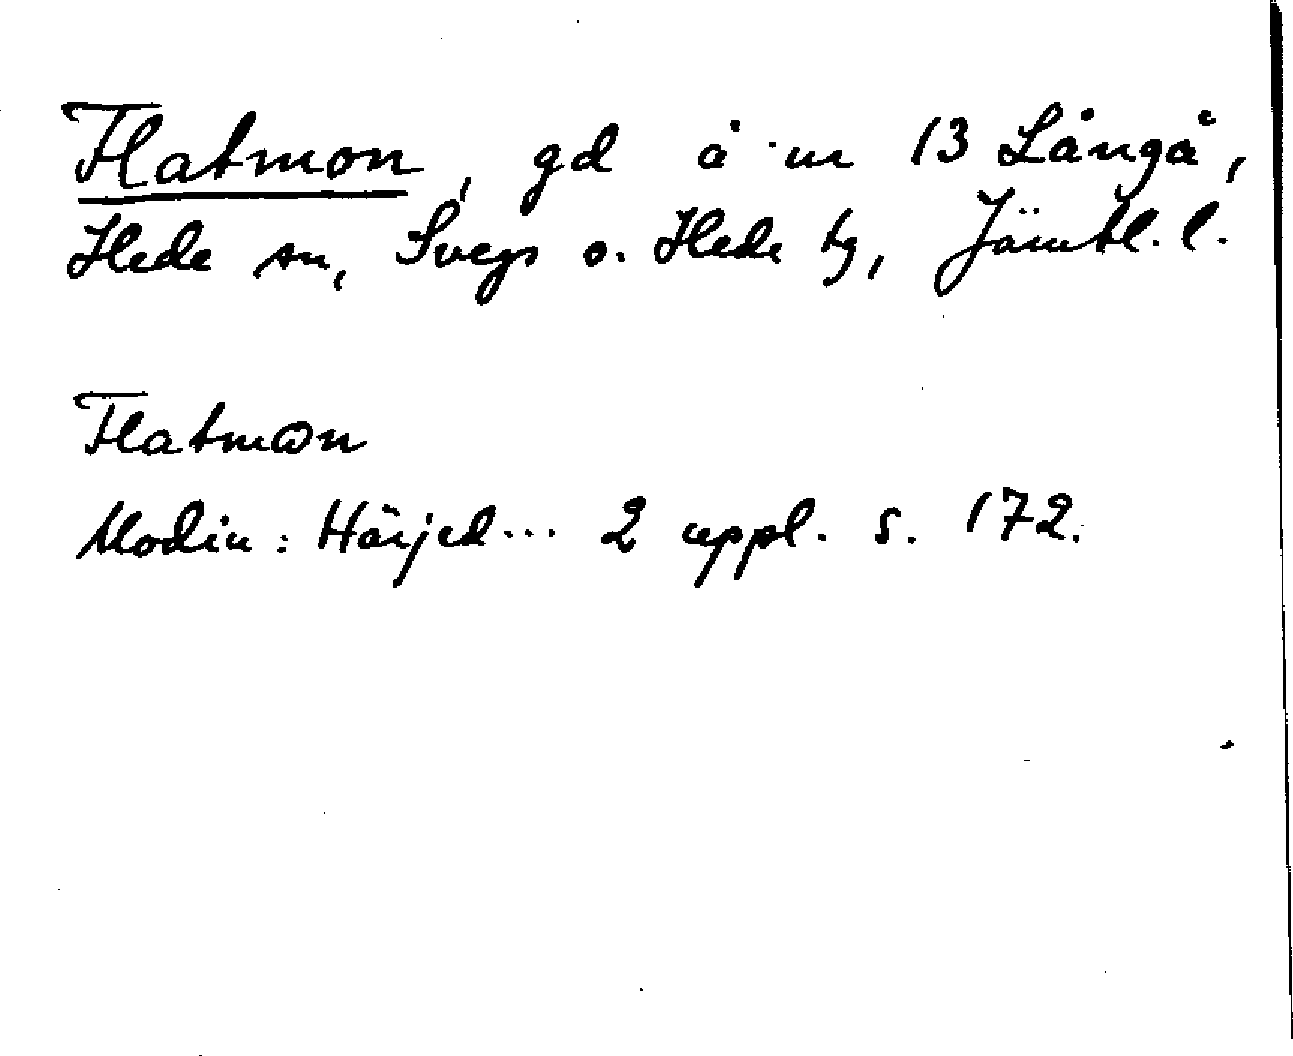 Flatmon, gd å nr 13 Långå,
Hede sn, Svegs o. Hede tg, Jämtl. l.
Flatmon
Modin: Härjed... 2 uppl. s. 172.